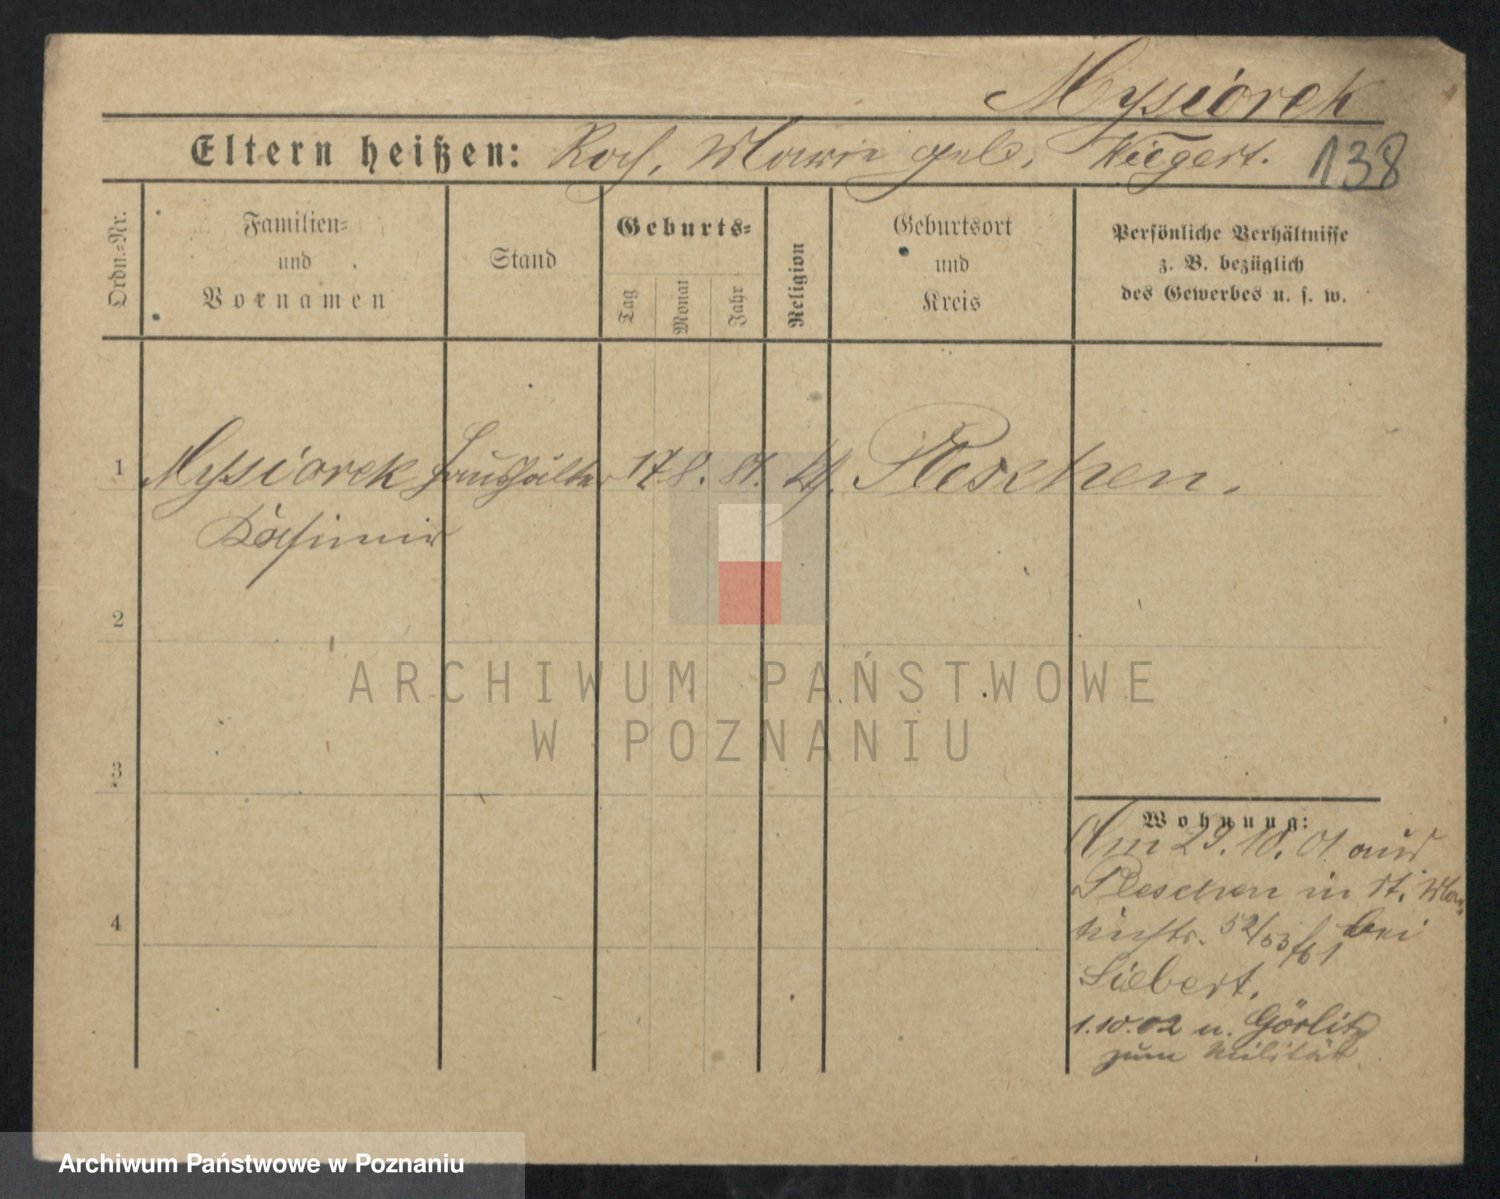 Mysiorek
Eltern heißen: Roch, Marie geb. Wiegert. 138
Ordn.=Nr.
Familien=
und
Vornamen
Stand
Geburts=
Tag
Monat
Jahr
Religion
Geburtsort
und
Kreis
Persönliche Verhältnisse
z. B. bezüglich
des Gewerbes u. s. w.
1 Mysiorek Haushälter 17. 8. 81. kt. Pleschen.
Kasimir
2
3
4
Wohnung:
Am 29.10.01. aus
Pleschen in St.
52/53 bei
Siebert.
1.10.02 n. Görlitz
zum Militär
ARCHIWUM PAŃSTWOWE
W POZNANIU
Archiwum Państwowe w Poznaniu